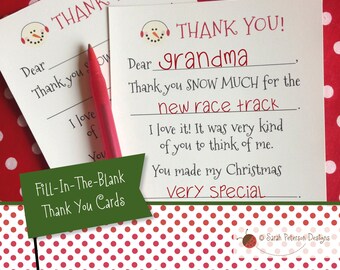 THANK
Dear
Thank you S
I love
of
You m
THANK YOU!
Dear grandma,
Thank you SNOW MUCH for the
new race track.
I love it! It was very kind
of you to think of me.
You made my Christmas
very special.
Fill-In-The-Blank
Thank You Cards
© Sarah Peterson Designs